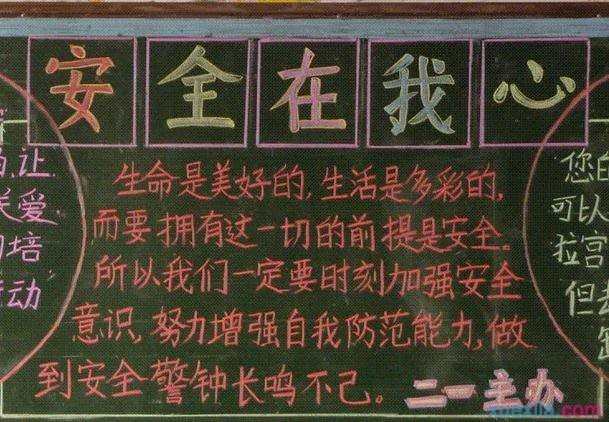 安全在我心
生命是美好的,生活是多彩的,
而要拥有这一切的前提是安全。
所以我们一定要时刻加强安全
意识,努力增强自我防范能力,做
到安全警钟长鸣不己。
二一主办
让
关爱
培
动
您的
可以
拉宫
但去